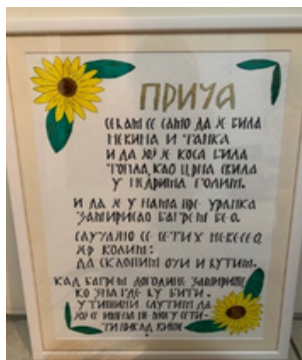 ПРИЧА
СЕЋАМ СЕ САМО ДА ЈЕ БИЛА
НЕВИНА И ТАНКА
И ДА ЈОЈ ЈЕ КОСА БИЛА
ТОПЛА, КАО ЦРНА СВИЛА
У НЕДРИМА ГОЛИМ.
И ДА ЈЕ У НАМА ПРЕ УРАНКА
ЗАМИРИСАО БАГРЕМ БЕО.
СЛУЧАЈНО СЕ СЕТИХ НЕВЕСЕО,
ЈЕР ВОЛИМ:
ДА СКЛОПИМ ОЧИ И ЋУТИМ.
КАД БАГРЕМ ДОГОДИНЕ ЗАМИРИШЕ
КО ЗНА ГДЕ ЋУ БИТИ.
У ТИШИНИ СЛУТИМ ДА
ЈОЈ СЕ ИМЕНА НЕ МОГУ СЕТИ-
ТИ НИКАД ВИШЕ